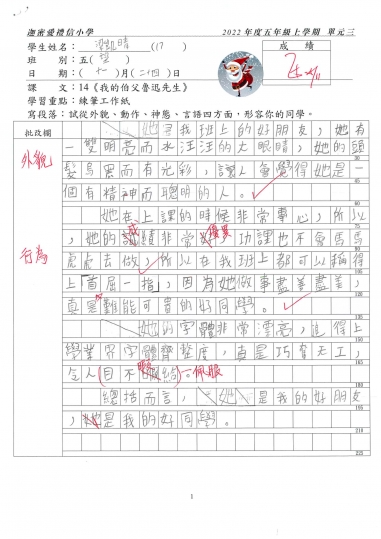 迦密愛禮信小學 2022年度五年級上學期 單元三
學生姓名：梁凱晴（17）
成績
班 別：五（望）
日 期：（十一）月（二十四）日
課 文：14《我的伯父魯迅先生》
學習重點：練筆工作紙
寫段落：試從外貌、動作、神態、言語四方面，形容你的同學。
批改欄
她是我班上的好朋友，她有
外貌
一雙明亮而水汪汪的大眼睛，她的頭
髮烏黑而有光彩，讓人會覺得她是一
個有精神而聰明的人。
她在上課的時候非常專心，所以
行為
，她的成績非常優異，功課也不會馬馬
虎虎去做，所以在我班上都可以稱得
上「首屈一指」，因為她做事盡善盡美，
真是難能可貴的好同學。
她的字體非常漂亮，追得上
學業界字體齊整度，真是巧奪天工，
令人（目不暇給）。佩服
總括而言，她是我的好朋友
，她是我的好同學。
30
45
60
75
90
105
120
135
150
165
180
195
210
225
1